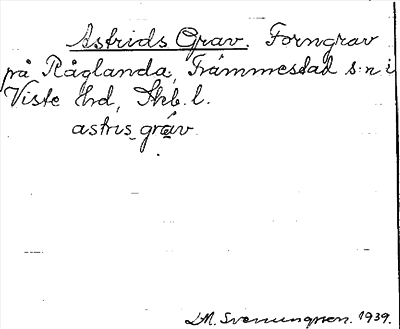 Astrids Grav. Forngrav
på Råglanda, Främmestad s:n i
Viste hrd, Skb. l.
astris gräv
D.M. Svenungsson. 1939.